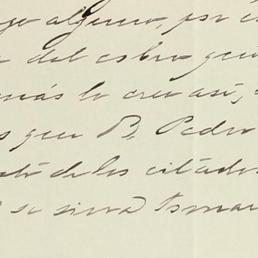 alguno, por
del cobro que
más lo creo así,
que D. Pedro
de los citados
se sirva tomar